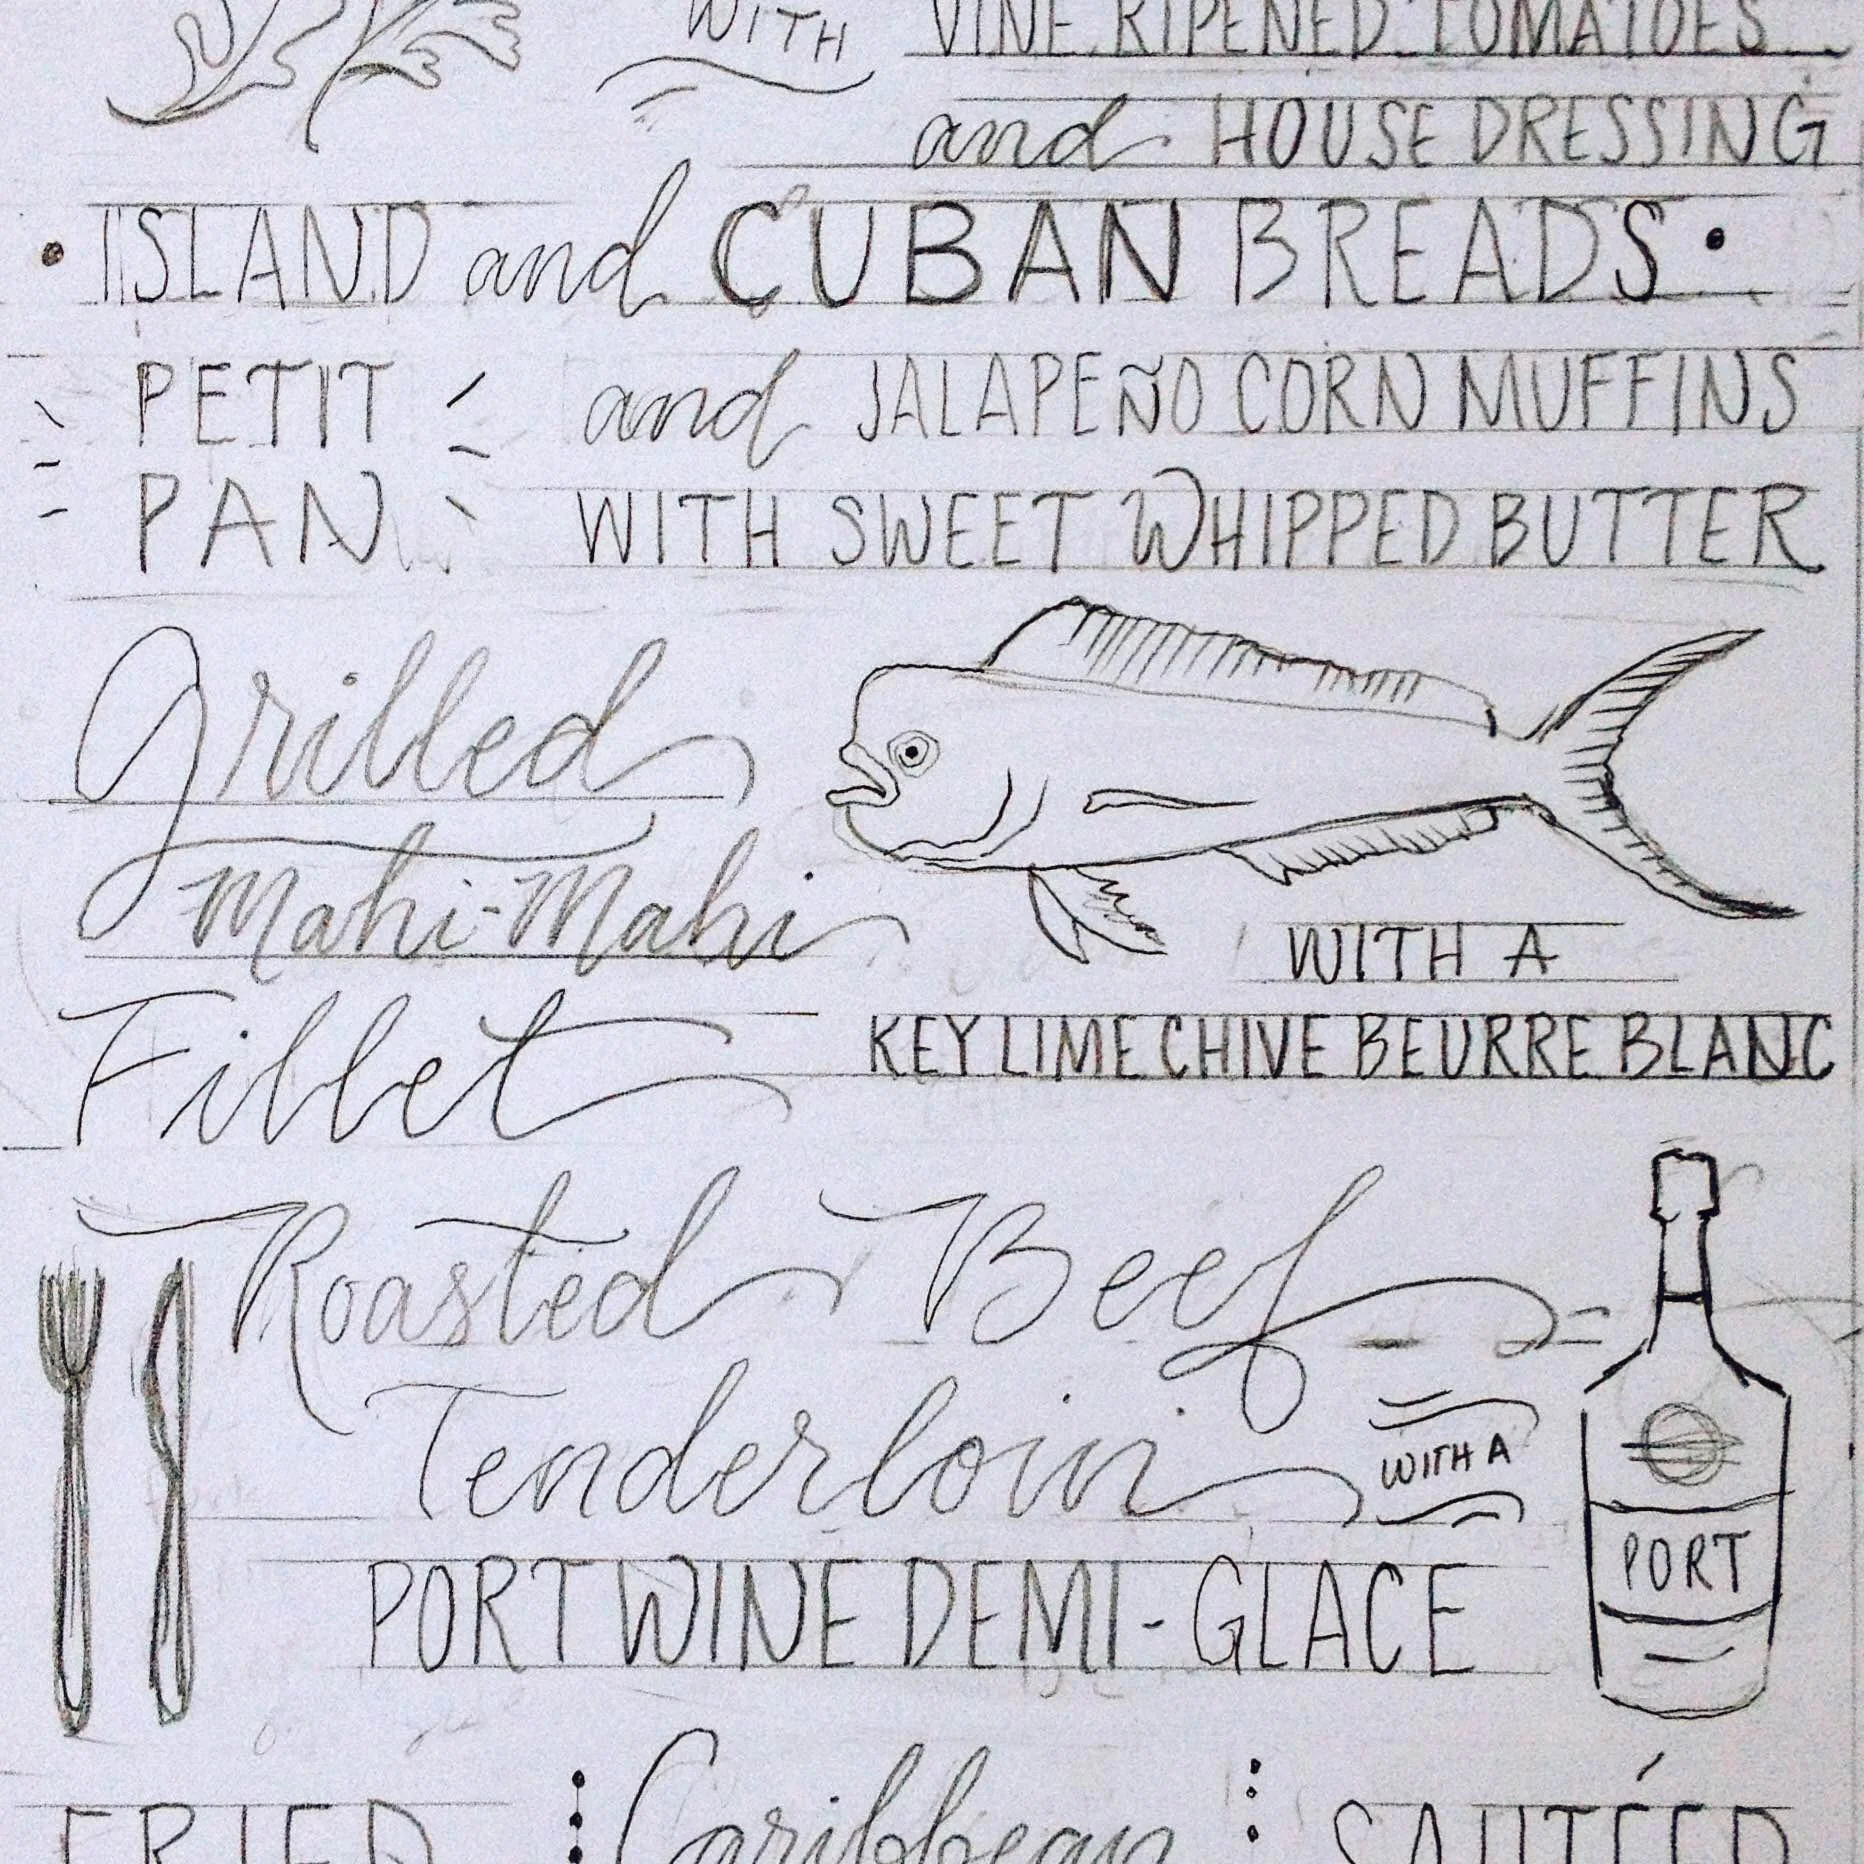 WITH VINE RIPENED TOMATOES
and HOUSE DRESSING
• ISLAND and CUBAN BREADS •
PETIT and JALAPEÑO CORN MUFFINS
PAN WITH SWEET WHIPPED BUTTER
Grilled
Mahi-Mahi
WITH A
Fillet KEY LIME CHIVE BEURRE BLANC
Roasted Beef
Tenderloin WITH A
PORT WINE DEMI-GLACE
PORT
FRIED Caribbean SAUTÉED